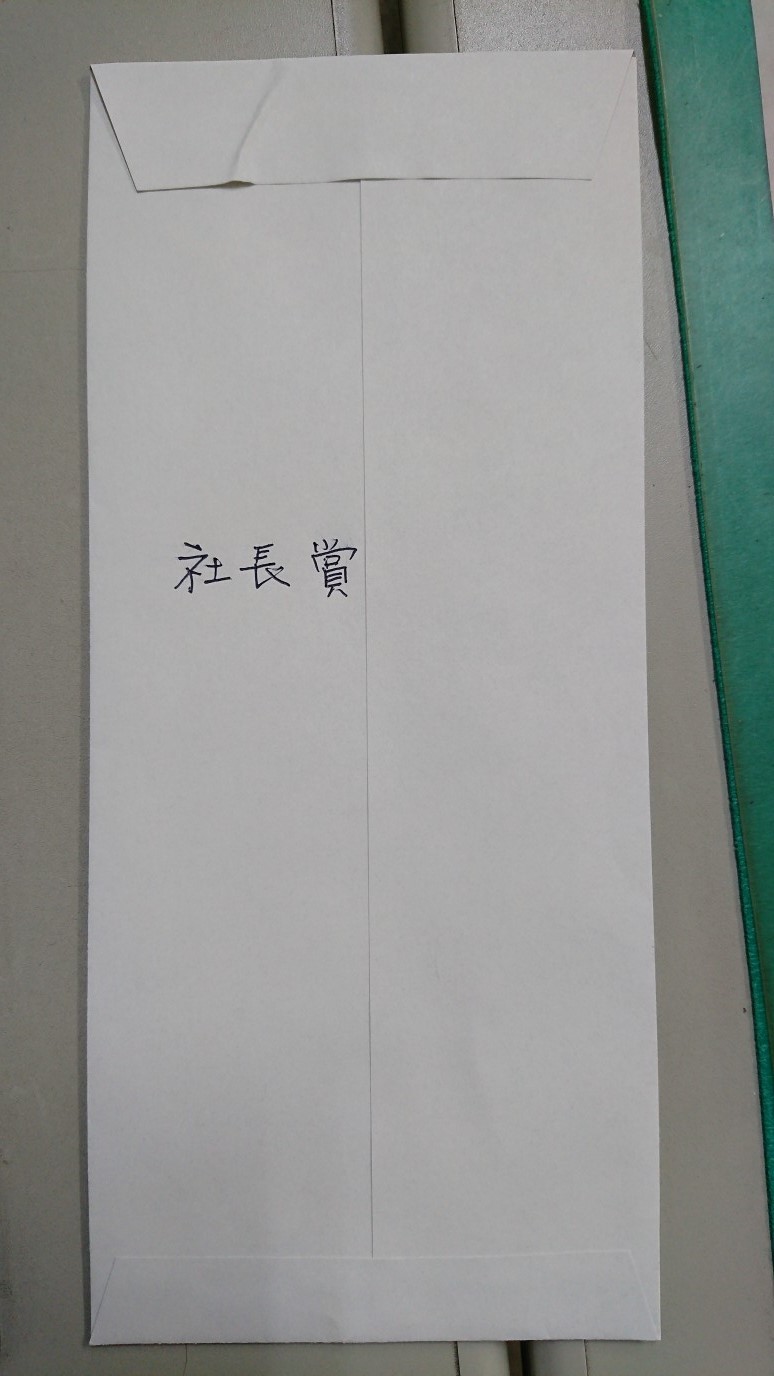 社長賞